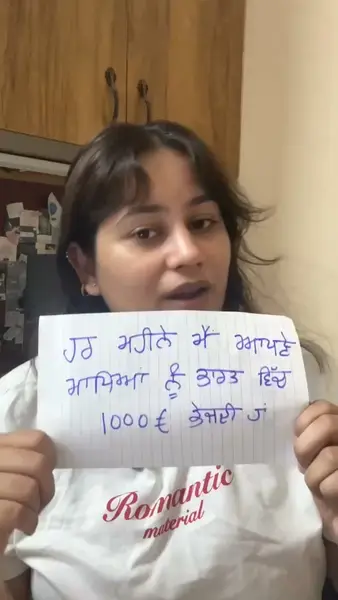 ਹਰ ਮਹੀਨੇ ਮੈਂ ਆਪਣੇ
ਮਾਪਿਆਂ ਨੂੰ ਭਾਰਤ ਵਿੱਚ
1000 € ਭੇਜਦੀ ਹਾਂ
Romantic
material